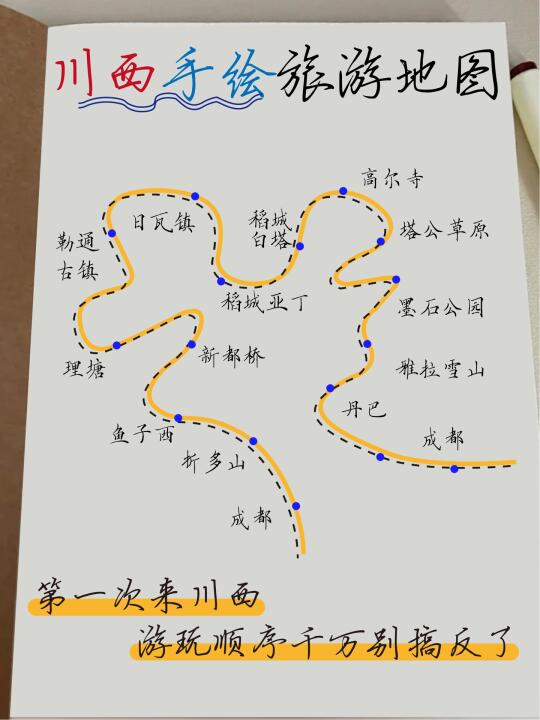 川西手绘旅游地图
高尔寺
稻城
白塔
塔公草原
日瓦镇
勒通
古镇
稻城亚丁
墨石公园
新都桥
理塘
雅拉雪山
丹巴
鱼子西
成都
折多山
成都
第一次来川西
游玩顺序千万别搞反了